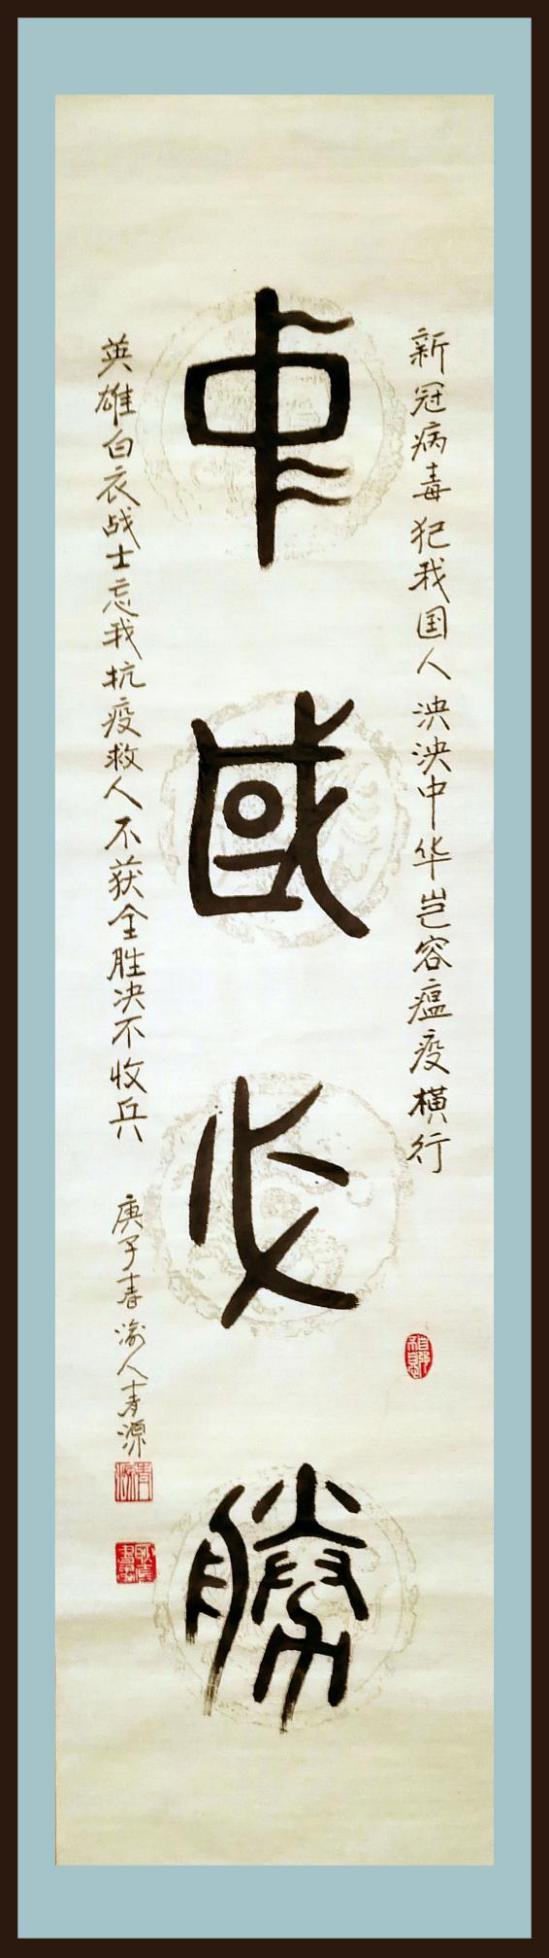 新冠病毒犯我国人泱泱中华岂容瘟疫横行
中國必勝
英雄白衣战士忘我抗疫救人不获全胜决不收兵
庚子春渝人青源